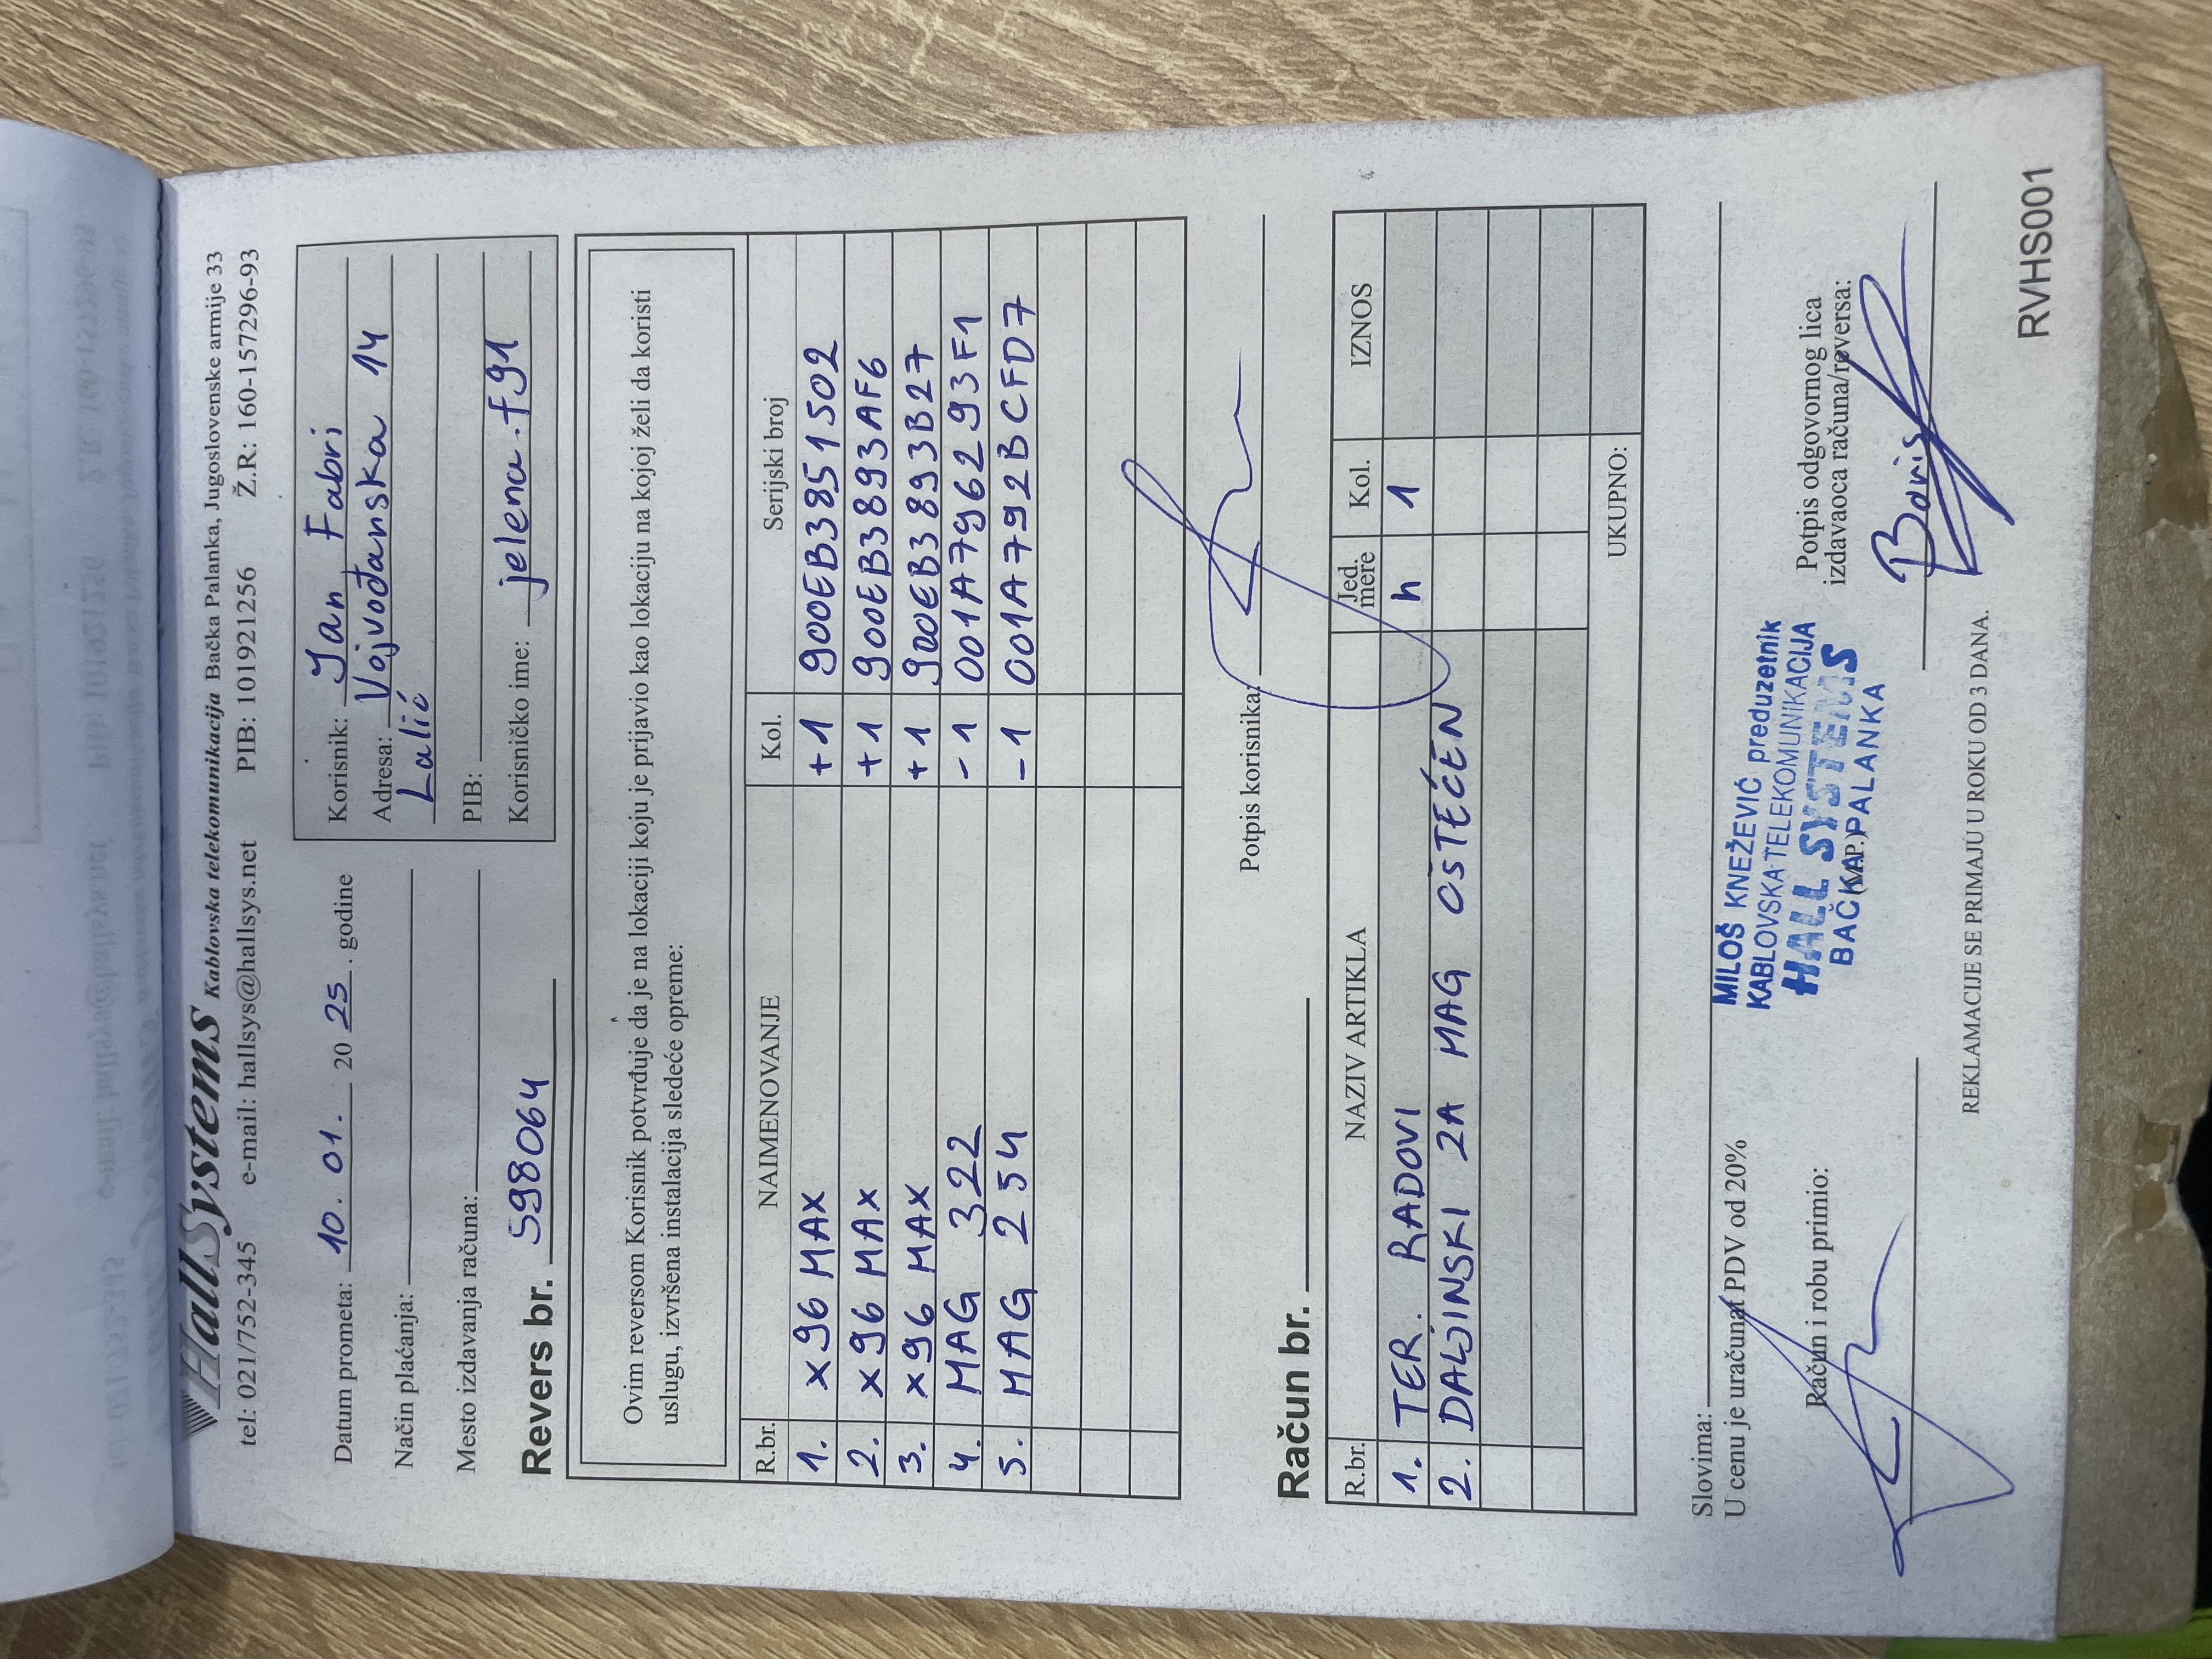 HallSystems Kablovska telekomunikacija Bačka Palanka, Jugoslovenske armije 33
tel: 021/752-345 e-mail: hallsys@hallsys.net PIB: 101921256 Ž.R.: 160-157296-93
Datum prometa: 10. 01. 20 25. godine
Način plaćanja:
Mesto izdavanja računa:
Revers br. 598064
Korisnik: Jan Fabri
Adresa: Vojvođanska 14
Lalić
PIB:
Korisničko ime: jelena.f91
Ovim reversom Korisnik potvrđuje da je na lokaciji koju je prijavio kao lokaciju na kojoj želi da koristi
uslugu, izvršena instalacija sledeće opreme:
R.br. NAIMENOVANJE Kol. Serijski broj
1. X96 MAX +1 900EB3851502
2. X96 MAX +1 900EB3893AF6
3. X96 MAX +1 900EB3893B27
4. MAG 322 -1 001A796293F1
5. MAG 254 -1 001A792BCFD7
Potpis korisnika:
Račun br.
R.br. NAZIV ARTIKLA Jed. mere Kol. IZNOS
1. TER. RADOVI h 1
2. DALJINSKI ZA MAG OŠTEĆEN
UKUPNO:
Slovima:
U cenu je uračunat PDV od 20%
Račun i robu primio:
MILOŠ KNEŽEVIĆ preduzetnik
KABLOVSKA TELEKOMUNIKACIJA
HALL SYSTEMS
BAČKA PALANKA
(M.P.)
Potpis odgovornog lica
izdavaoca računa/reversa:
Boris
REKLAMACIJE SE PRIMAJU U ROKU OD 3 DANA.
RVHS001